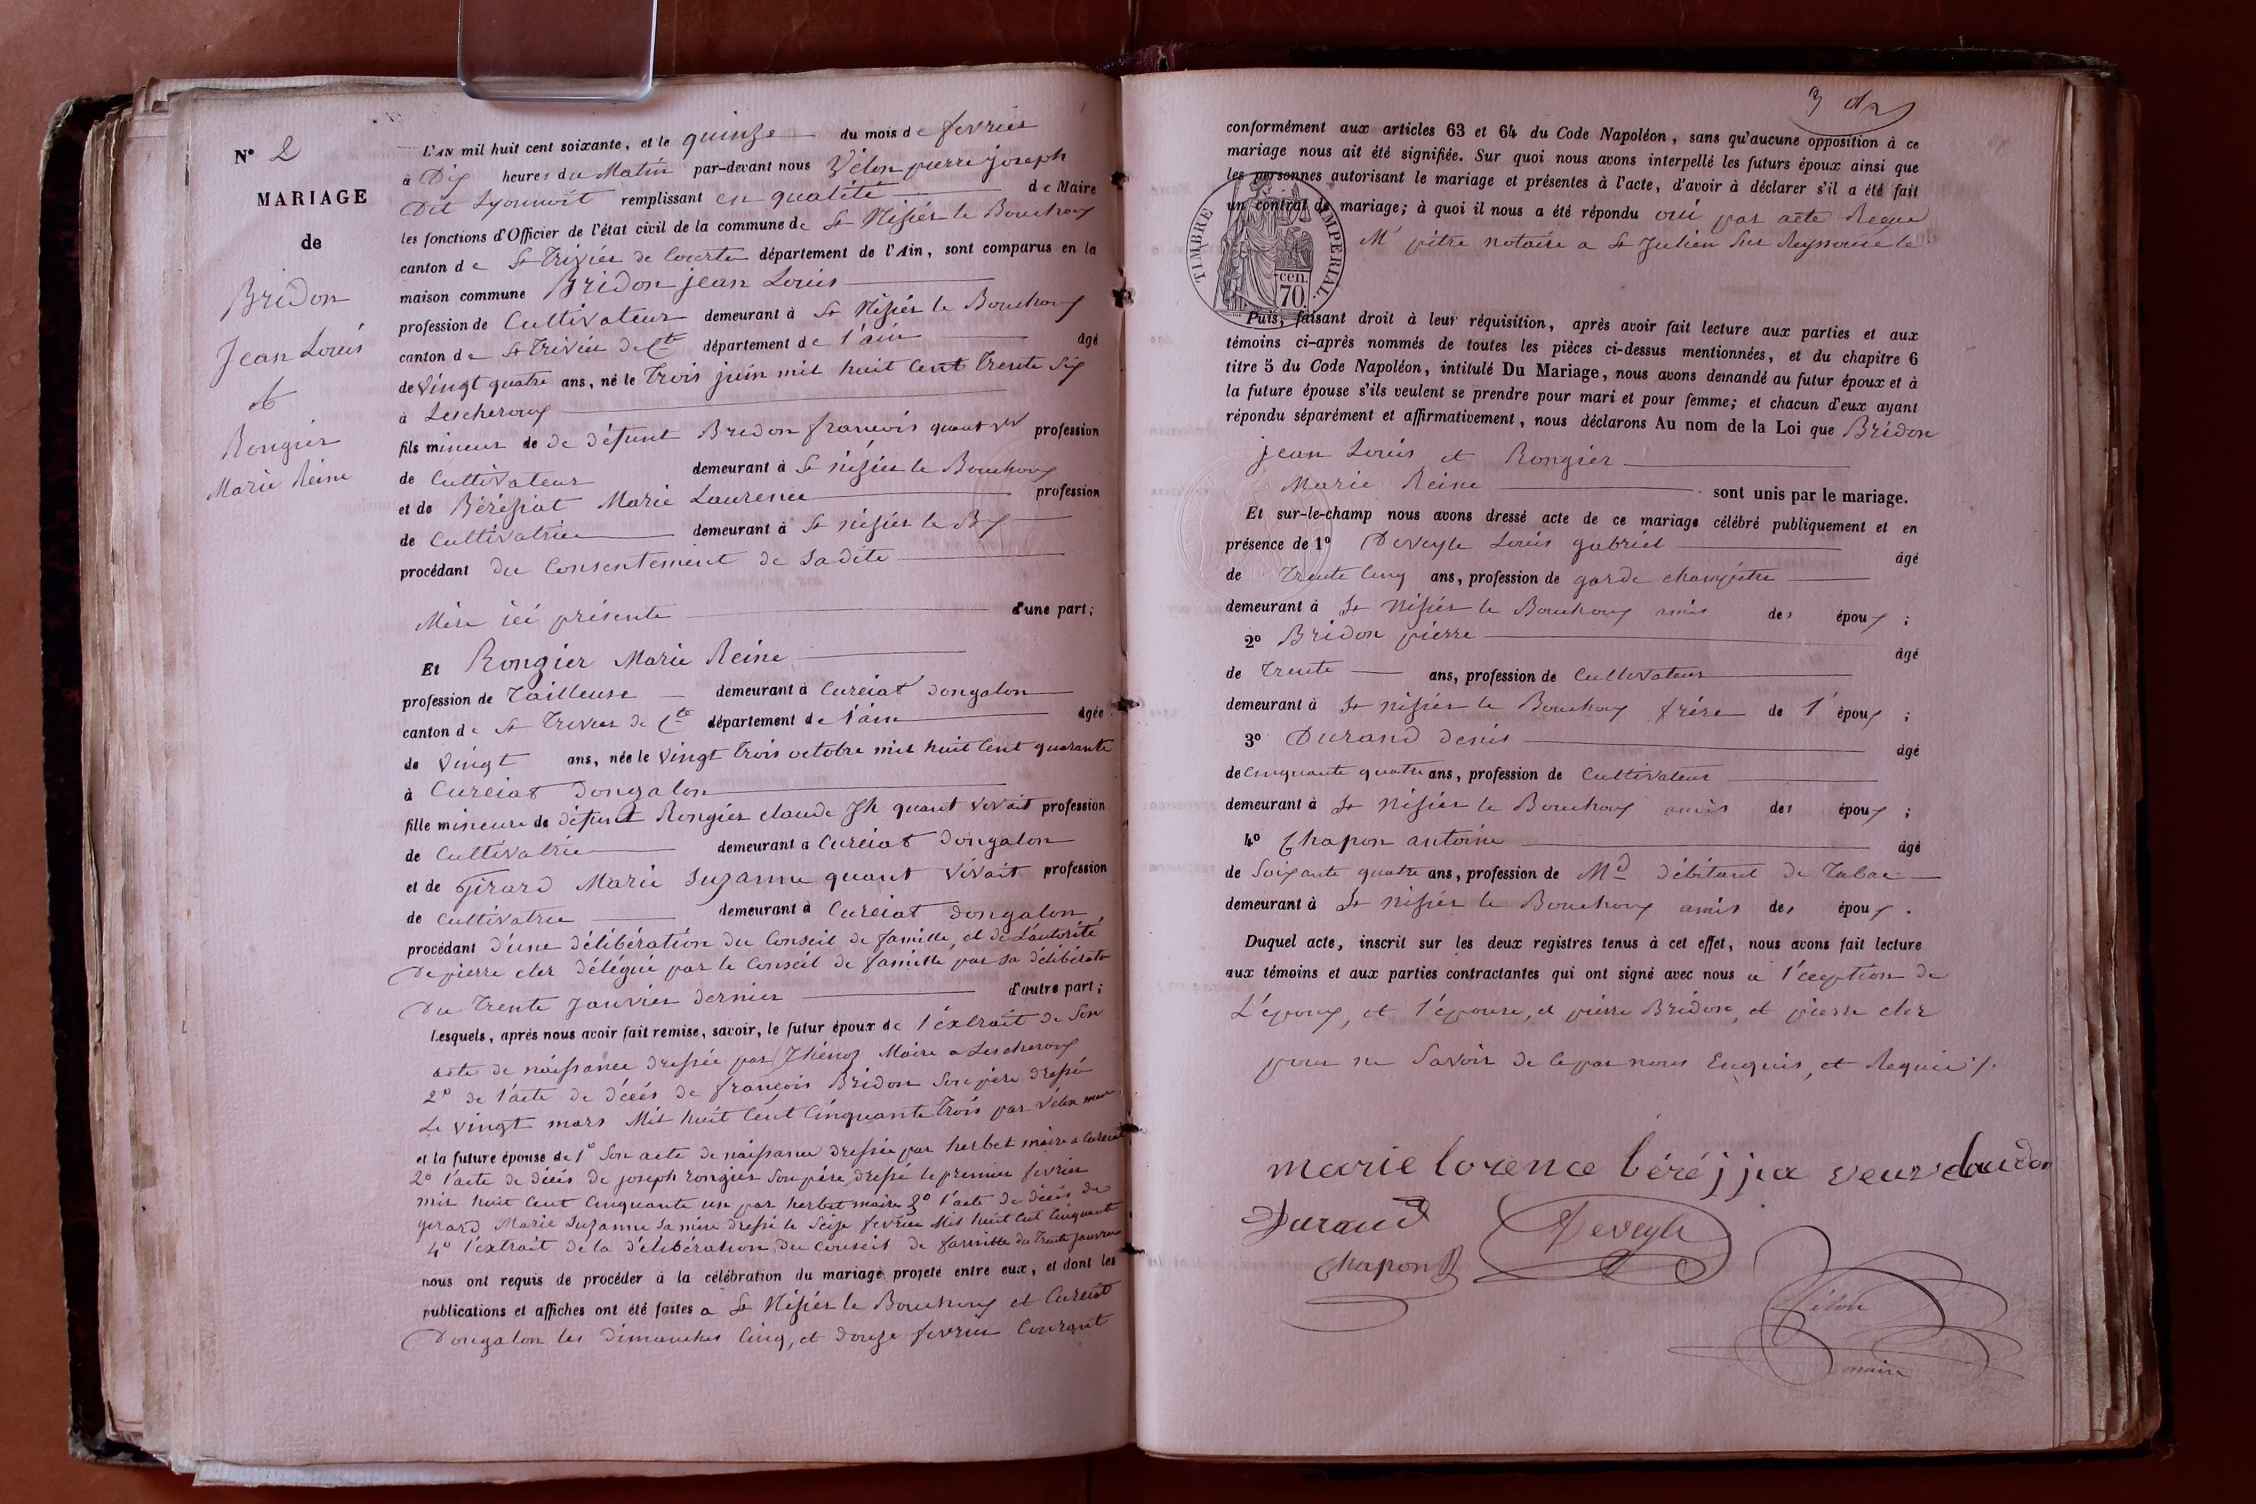 N° 2
MARIAGE
de
Bridon
Jean Louis
et
Rongier
Marie Reine
L'AN mil huit cent soixante, et le quinze du mois de fevrier
à Dix heures du Matin par-devant nous Vélon pierre joseph
Dit Lyonnoit remplissant en qualité de Maire
les fonctions d'Officier de l'état civil de la commune de St Nisier le Bouchoux
canton de St Trivier de Courtes département de l'Ain, sont comparus en la
maison commune Bridon jean Louis
profession de Cultivateur demeurant à St Nisier le Bouchoux
canton de St Trivier de Ctes département de l'ain âgé
de Vingt quatre ans, né le trois juin mil huit Cent trente six
à Lescheroux
fils mineur de de défunt Bridon françois quant vt profession
de Cultivateur demeurant à St nisier le Bouchoux
et de Béréziat Marie Laurence profession
de Cultivatrice demeurant à St nisier le Bx
procédant du Consentement de Sadite
Mère ici présente d'une part;
Et Rongier Marie Reine
profession de Tailleuse demeurant à Curciat Dongalon
canton de St Trivier de Ctes département de l'ain âgée
de Vingt ans, née le Vingt trois octobre mil huit Cent quarante
à Curciat Dongalon
fille mineure de défunt Rongier claude Jh quant vivait profession
de Cultivatrice demeurant à Curciat Dongalon
et de Girard Marie Suzanne quant Vivait profession
de Cultivatrice demeurant à Curciat Dongalon
procédant d'une délibération du Conseil de famille, et de L'autorité
De pierre cler délégué par le Conseil de famille par sa délibération
Du trente Janvier dernier d'autre part;
Lesquels, après nous avoir fait remise, savoir, le futur époux de l'extrait de Son
acte de naissance dressée par Thénoz Maire a Lescheroux
2° de l'acte de décés de françois Bridon Son père dressé
Le vingt mars Mil huit Cent Cinquante trois par Vélon maire
et la future épouse de 1° Son acte de naissance dressée par herbet maire a Curciat
2° l'acte de décés de joseph rongier Son père, dressé le premier fevrier
mil huit Cent Cinquante un par herbet maire 3° l'acte de décés de
girard Marie Suzanne sa mère dressé le Seize fevrier Mil huit Cent Cinquante
4° l'extrait de la délibération du Conseil de famille du trente janvier
nous ont requis de procéder à la célébration du mariage projeté entre eux, et dont les
publications et affiches ont été faites a St Nisier le Bouchoux et Curciat
Dongalon les dimanches Cinq, et douze fevrier Courant
conformément aux articles 63 et 64 du Code Napoléon, sans qu'aucune opposition à ce
mariage nous ait été signifiée. Sur quoi nous avons interpellé les futurs époux ainsi que
les personnes autorisant le mariage et présentes à l'acte, d'avoir à déclarer s'il a été fait
un contrat de mariage; à quoi il nous a été répondu oui par acte Reçue
Mr pitre notaire a St Julien Sur Reyssouse le
TIMBRE IMPERIAL.
cen.
70.
Puis, faisant droit à leur réquisition, après avoir fait lecture aux parties et aux
témoins ci-après nommés de toutes les pièces ci-dessus mentionnées, et du chapitre 6
titre 5 du Code Napoléon, intitulé Du Mariage, nous avons demandé au futur époux et à
la future épouse s'ils veulent se prendre pour mari et pour femme; et chacun d'eux ayant
répondu séparément et affirmativement, nous déclarons Au nom de la Loi que Bridon
jean Louis et Rongier
Marie Reine sont unis par le mariage.
Et sur-le-champ nous avons dressé acte de ce mariage célébré publiquement et en
présence de 1° Deveyle Louis gabriel âgé
de Trente Cinq ans, profession de garde champêtre
demeurant à St Nisier le Bouchoux amis des époux ;
2° Bridon pierre âgé
de Trente ans, profession de Cultivateur
demeurant à St nisier le Bouchoux frère de l' époux ;
3° Durand denis âgé
de Cinquante quatre ans, profession de Cultivateur
demeurant à St Nisier le Bouchoux amis des époux ;
4° Chapon antoine âgé
de Soixante quatre ans, profession de Md débitant de Tabac
demeurant à St nisier le Bouchoux amis des époux .
Duquel acte, inscrit sur les deux registres tenus à cet effet, nous avons fait lecture
aux témoins et aux parties contractantes qui ont signé avec nous a l'éception de
L'époux, et l'épouse, et pierre Bridon, et pierre cler
pour ne Savoir de ce par nous Enquis, et Requis
marie lorence béréjja
Durand Deveyle
Chapon
Vélon
maire